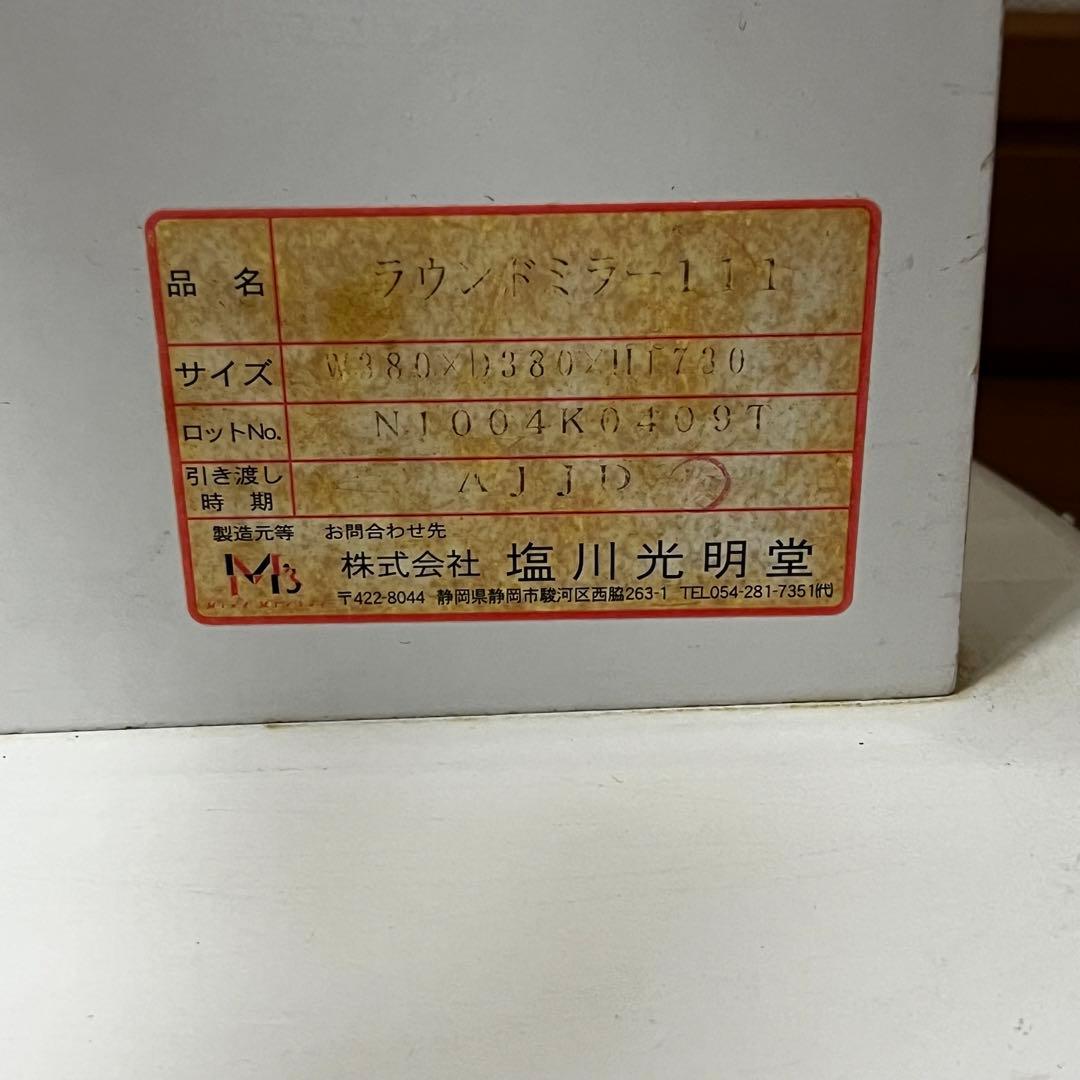 品名 ラウンドミラー111
サイズ W380×D380×H1730
ロットNo. N1004K0409T
引き渡し時期 AJJD
製造元等 お問合わせ先
M's 株式会社 塩川光明堂
〒422-8044 静岡県静岡市駿河区西脇263-1 TEL054-281-7351㈹